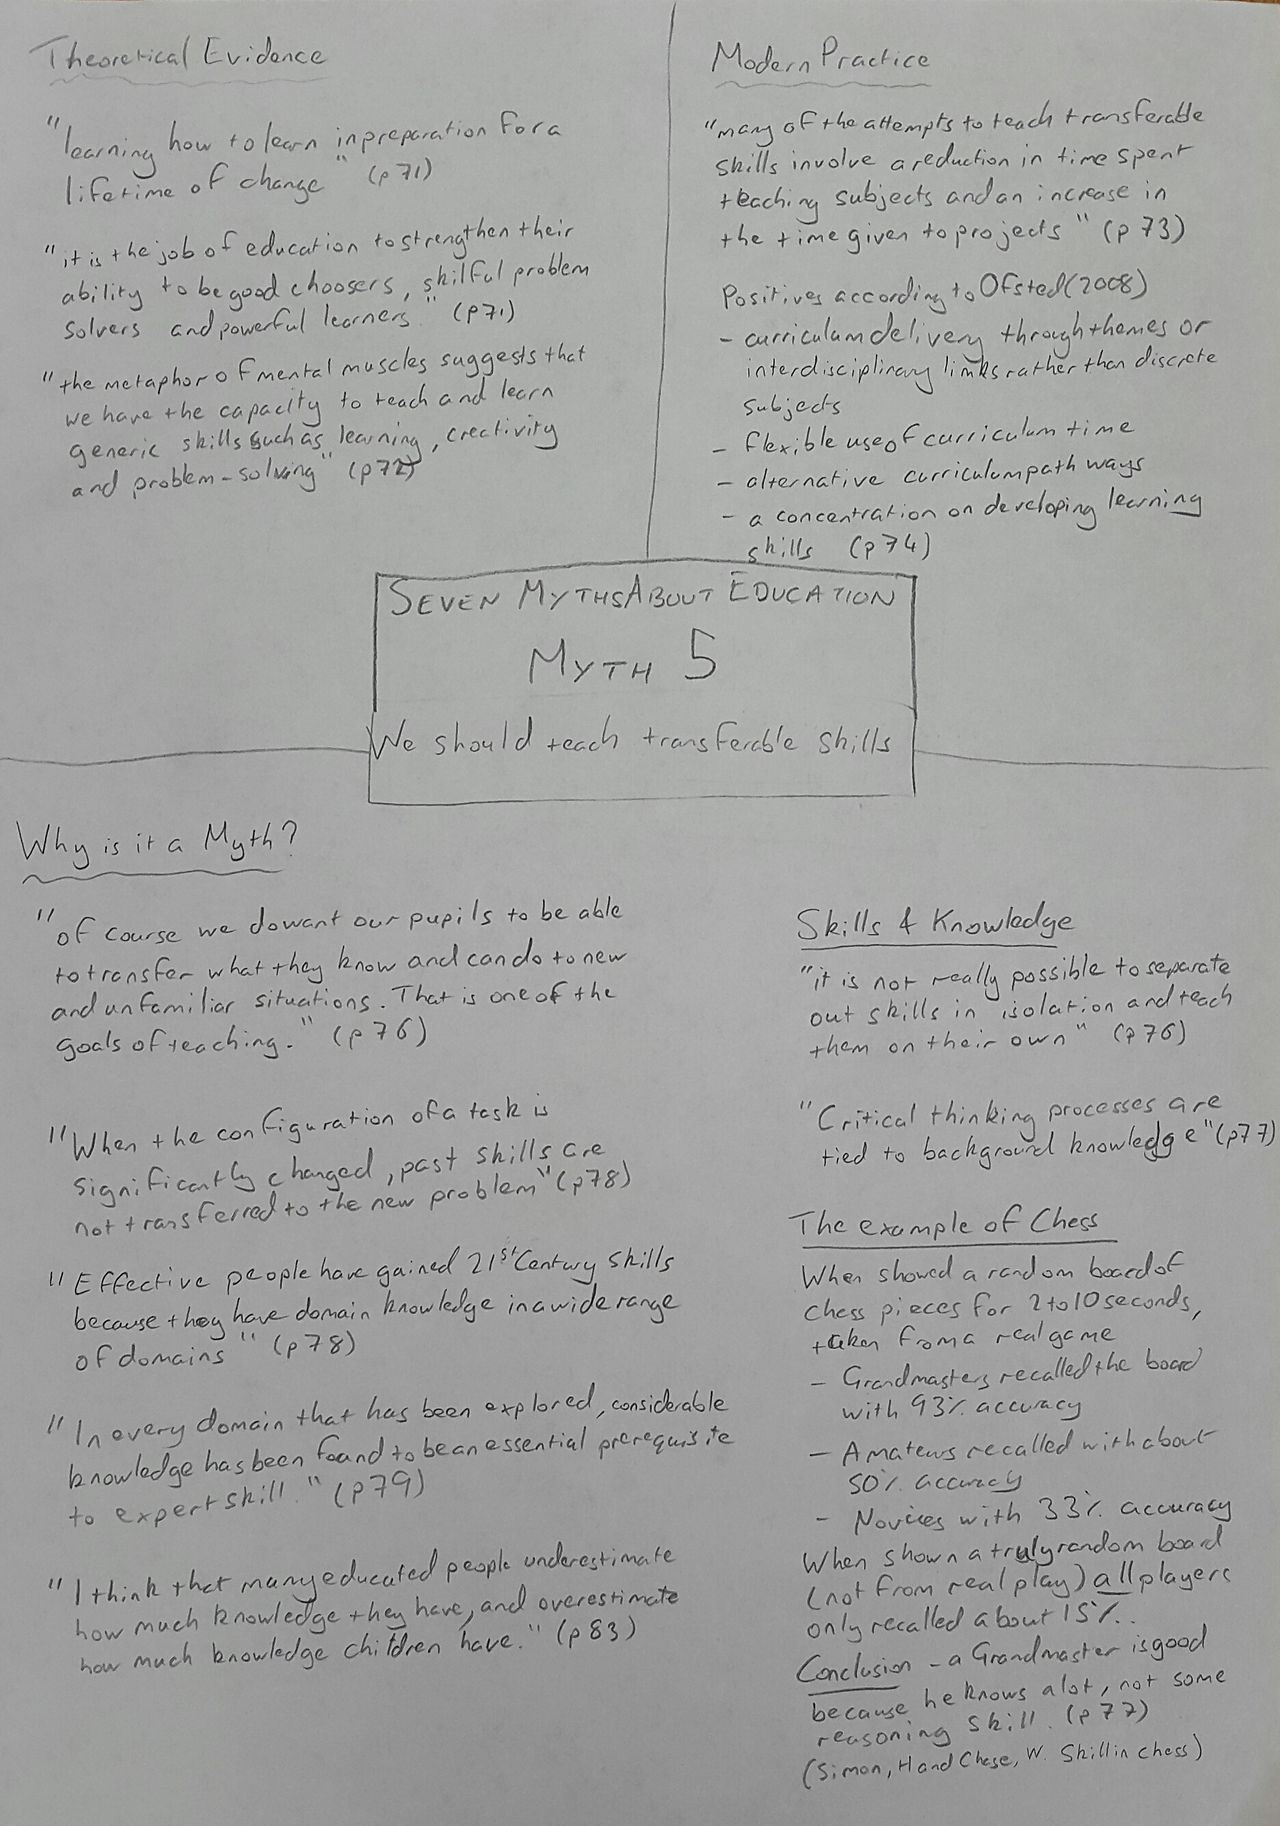 Theoretical Evidence
"learning how to learn in preparation for a
lifetime of change" (p71)
"it is the job of education to strengthen their
ability to be good choosers, skilful problem
solvers and powerful learners." (p71)
"the metaphor of mental muscles suggests that
we have the capacity to teach and learn
generic skills such as learning, creativity
and problem-solving" (p72)
Modern Practice
"many of the attempts to teach transferable
skills involve a reduction in time spent
teaching subjects and an increase in
the time given to projects" (p73)
Positives according to Ofsted (2008)
- curriculum delivery through themes or
interdisciplinary links rather than discrete
subjects
- flexible use of curriculum time
- alternative curriculum path ways
- a concentration on developing learning
skills (p74)
SEVEN MYTHS ABOUT EDUCATION
MYTH 5
We should teach transferable skills
Why is it a Myth?
"of course we do want our pupils to be able
to transfer what they know and can do to new
and unfamiliar situations. That is one of the
goals of teaching." (p76)
"When the configuration of a task is
significantly changed, past skills are
not transferred to the new problem" (p78)
"Effective people have gained 21st Century skills
because they have domain knowledge in a wide range
of domains" (p78)
"In every domain that has been explored, considerable
knowledge has been found to be an essential prerequisite
to expert skill." (p79)
"I think that many educated people underestimate
how much knowledge they have, and overestimate
how much knowledge children have." (p83)
Skills & Knowledge
"it is not really possible to separate
out skills in isolation and teach
them on their own" (p76)
"Critical thinking processes are
tied to background knowledge" (p77)
The example of Chess
When showed a random board of
chess pieces for 2 to 10 seconds,
taken from a real game
- Grandmasters recalled the board
with 93% accuracy
- Amateurs recalled with about
50% accuracy
- Novices with 33% accuracy
When shown a truly random board
(not from real play) all players
only recalled about 15%.
Conclusion - a Grandmaster is good
because he knows a lot, not some
reasoning skill. (p77)
(Simon, H and Chase, W. Skill in chess)